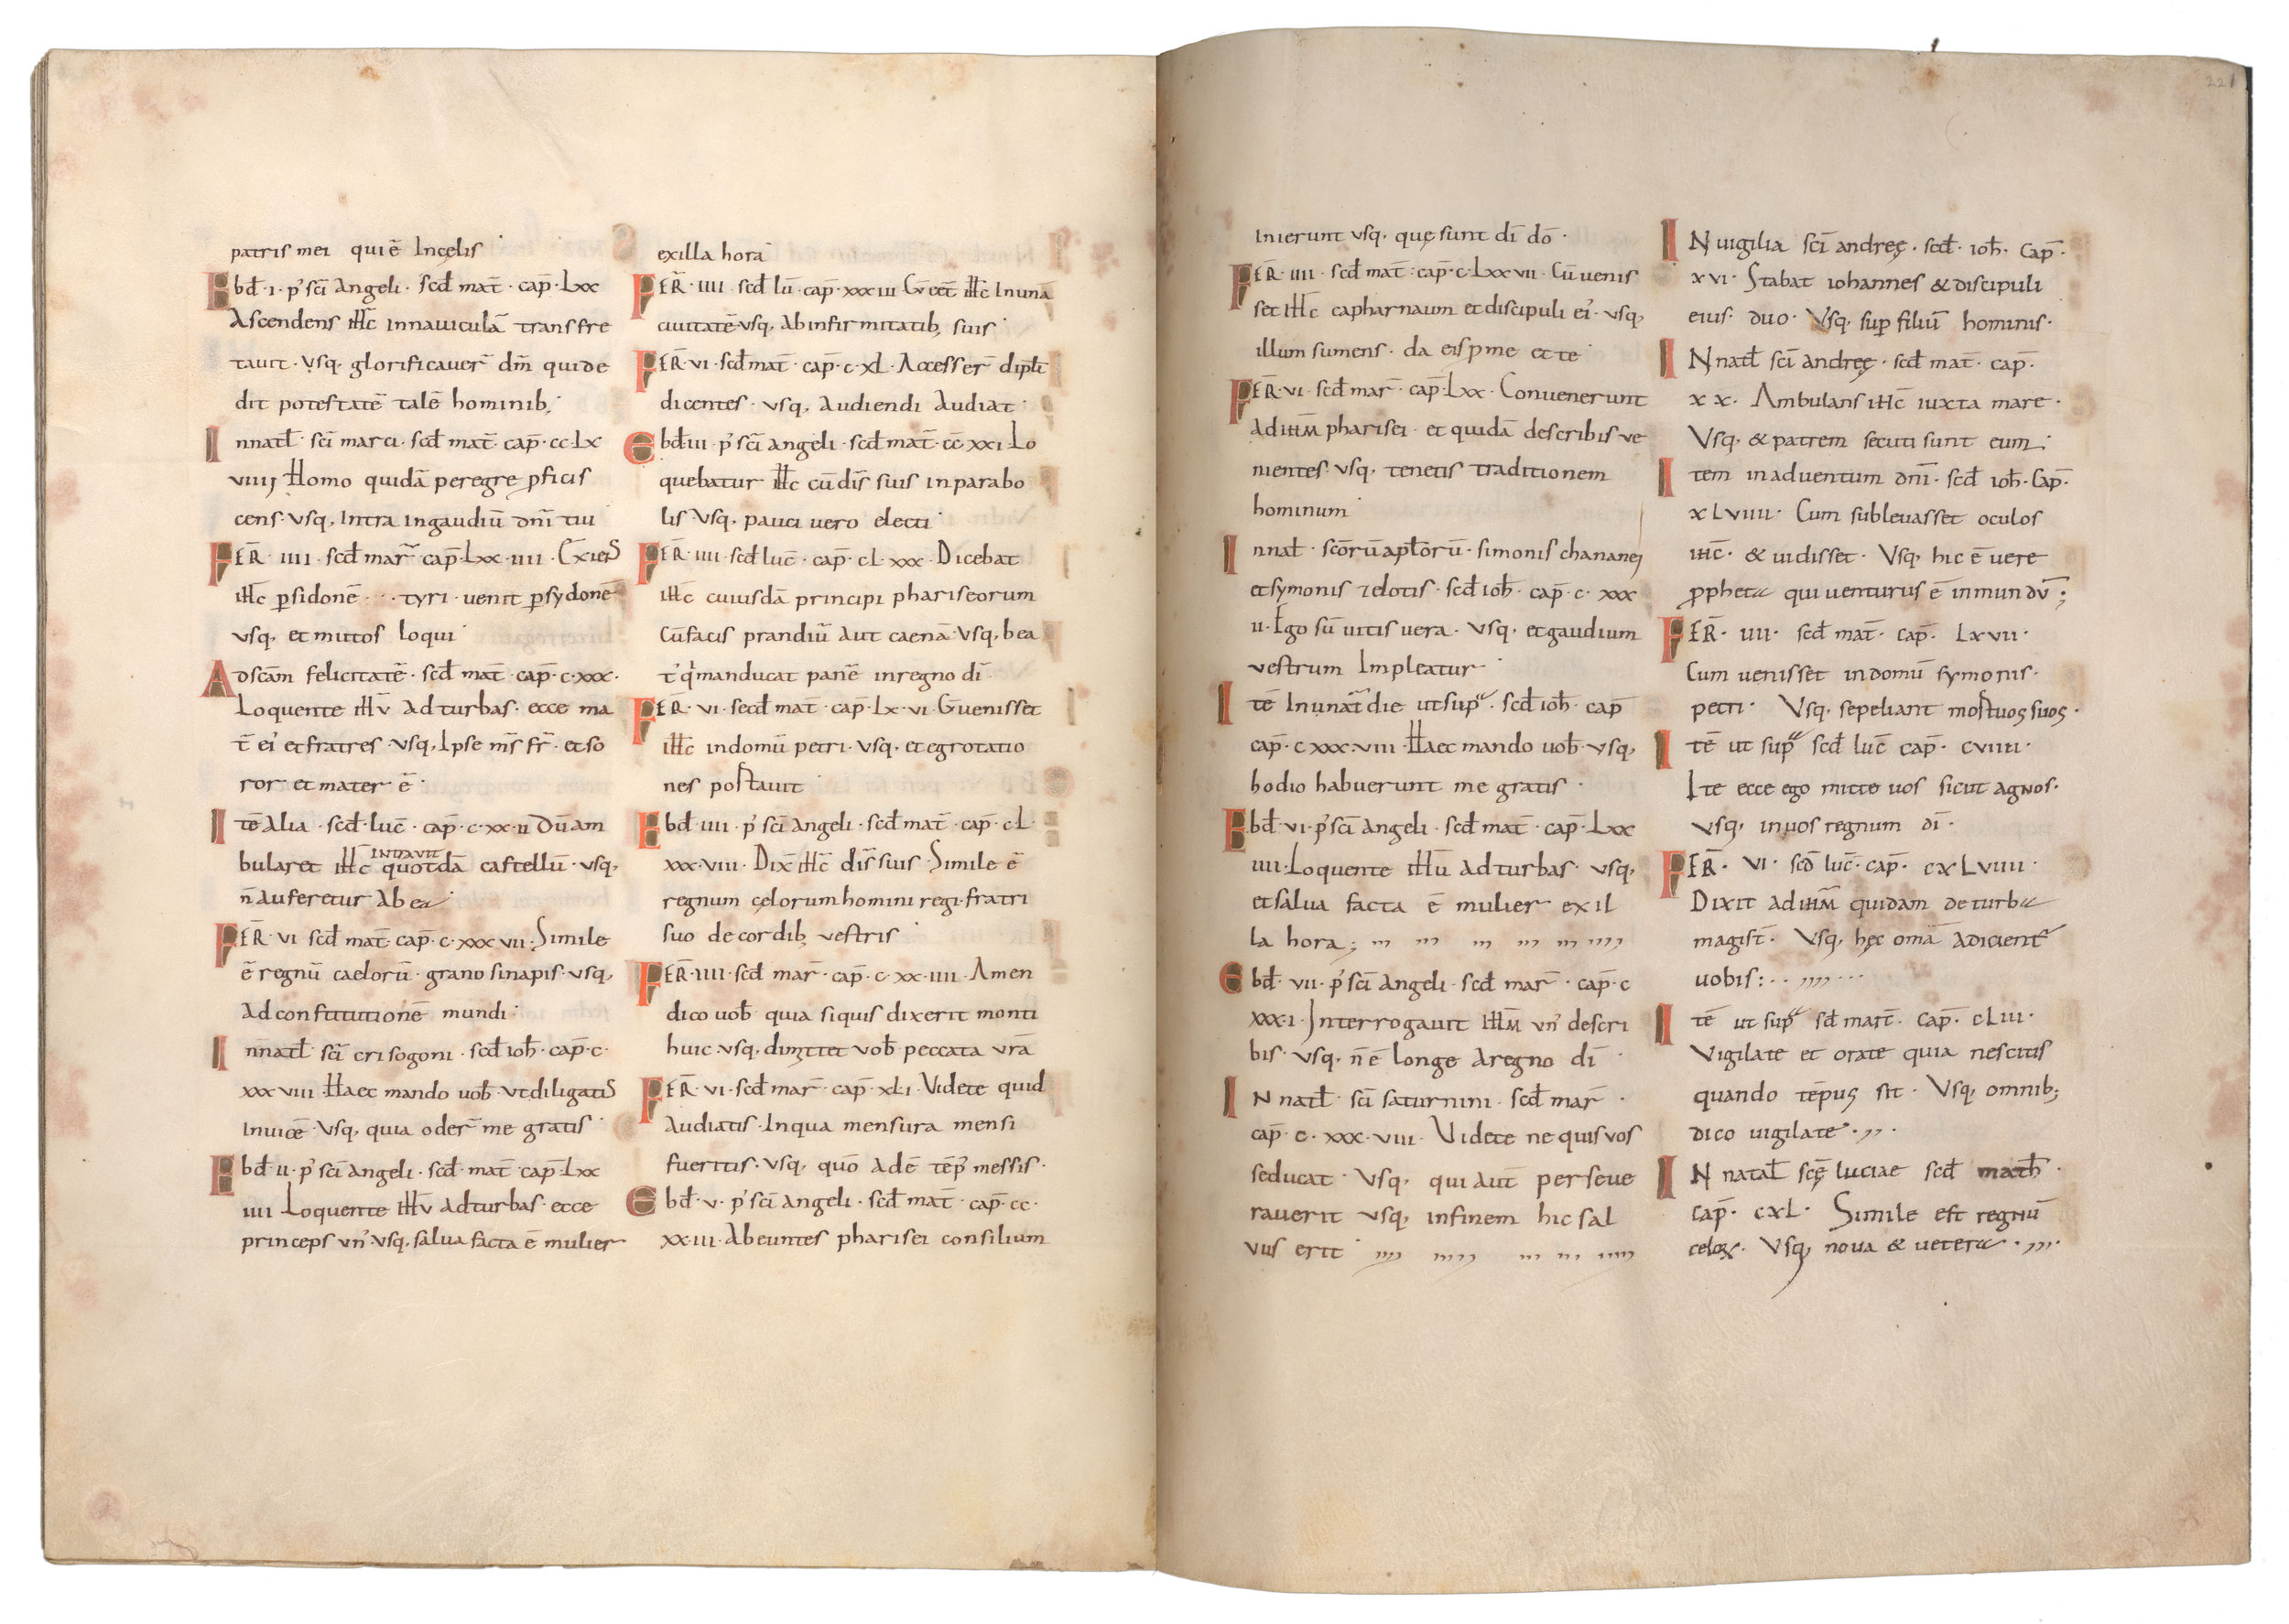 patris mei quiē Incęlis
Ebđ·I·p' sci angeli· scđ mat̄· cap̄·Lxx
Ascendens iħc innauiculā transfre
tauit· vsq, glorificauer̄ dm̄ quide
dit potestatē talē hominib;
Innatł· sci marci· scđ mat̄· cap̄·cc·Lx
viiij Homo quidā peregre pficis
cens· vsq, Intra ingaudiū dnī tui
FER̄·IIII· scđ mar̄· cap̄·Lxx·IIII· Exiens
iħc p̄sidonē · · · tyri· venit p̄sydonē
vsq, et mutos loqui
Adscām felicitatē· scđ mat̄· cap̄·c·xxx·
Loquente iħū adturbas· ecce ma
t̄ ei' et fratres· vsq, Ipse m̄s fr̄· et so
ror et mater ē·
Itē Alia· scđ·luc̄· cap̄·c·xx·II Dūam
INTRAVIT
bularet iħc quotdā castellū· vsq,
n̄ auferetur Abea
FER̄·VI scđ mat̄· cap̄·c·xxxvii· Simile
ē regnū caelorū· grano sinapis· vsq,
Ad constitutionē mundi·
Innatł sci crisogoni· scđ ioħ· cap̄·c·
xxxviii· Haec mando uob̄· vtdiligatis
Inuicē· vsq, quia oder̄ me gratis
Ebđ·II·p' sci angeli· scđ· mat̄· cap̄·Lxx
IIII Loquente iħū adturbas· ecce
princeps vn'· vsq, salua facta ē mulier
exilla hora
FER̄·IIII· scđ lū· cap̄·xxxIII· Cū eēt iħc Inunā
ciuitatē·vsq, Abinfirmitatib; suis
FER̄·VI· scđ mat̄· cap̄·c·xL· Accesser̄ dipłi
dicentes· vsq, Audiendi Audiat·
Ebđ·III·p' sci angeli· scđ mat̄· cc̄·xxi· Lo
quebatur iħc cū dis̄ suis inparabo
lis· vsq, pauci uero electi
FER̄·IIII· scđ luc̄· cap̄·cL·xxx· Dicebat
iħc cuiusdā principi phariseorum
Cūfacis prandiū aut caenā· vsq, bea
t' q' manducat panē inregno di·
FER̄·VI· secđ mat̄· cap̄·Lx·vi· Cū uenisset
iħc indomū petri· vsq, et egrotatio
nes postauit
Ebđ·IIII·p' sci angeli· scđ mat̄· cap̄·cL·
xxx·viii· Dix̄ iħc dis̄ suis· Simile ē
regnum cęlorum homini regi· fratri
suo decordib; vestris
FER̄·IIII· scđ mar̄· cap̄·c·xx·IIII· Amen
dico uob̄· quia siquis dixerit monti
huic· vsq, dimittet vob̄ peccata vrā
FER̄·VI· scđ mar̄· cap̄·xLi· Videte quid
Audiatis· Inqua mensura mensi
fueritis· vsq, quō adē tēp' messis·
Ebđ·v·p' sci angeli· scđ mat̄· cap̄·cc·
xx·III· Abeuntes pharisei consilium
221
Inierunt vsq, quę sunt di dō·
FER̄·IIII· scđ mat̄· cap̄·c·Lxxvii· Cū uenis
set iħc capharnaum et discipuli ei'· vsq,
illum sumens· da eis p me et te
FER̄·VI· scđ mar̄· cap̄·Lxx· Conuenerunt
Ad iħm̄ pharisei· et quidā describis ve
nientes· vsq, tenetis traditionem
hominum
Innat̄· scōrū apłorū· simonis chananei
et symonis zelotis· scđ ioħ· cap̄·c·xxx
II· Ego sū uitis uera· vsq, et gaudium
vestrum Impleatur
Itē Inunā die ut sup̄ᵃ· scđ ioħ· cap̄
cap̄·cxxx·viii· Haec mando uob̄· vsq,
hodio habuerunt me gratis·
Ebđ·vi·p' sci angeli· scđ mat̄· cap̄·Lxx
IIII· Loquente iħū adturbas· vsq,
et salua facta ē mulier exil
la hora;
Ebđ·vii·p' sci angeli· scđ mar̄· cap̄·c
xxx·i· Interrogauit iħm̄ vn' descri
bis· vsq, n̄ ē longe aregno di·
IN natł· sci saturnini· scđ mar̄·
cap̄·c·xxx·viii· Videte ne quis vos
seducat· vsq, qui aut̄ perseue
rauerit vsq, infinem hic sal
vus erit
IN uigilia sci andreę· scđ· ioħ· Cap̄·
xvi· Stabat iohannes & discipuli
eius· duo· Vsq, sup̄ filiū hominis·
IN natł sci andreę· scđ mat̄· cap̄·
xx· Ambulans iħc iuxta mare·
Vsq, & patrem secuti sunt eum·
Item inaduentum dnī· scđ ioħ· Cap̄·
xLviiii· Cum subleuasset oculos
iħc̄· & uidisset· Vsq, hic ē uere
propheta qui uenturus ē inmundū;
FER̄·IIII· scđ mat̄· cap̄· Lxvii·
Cum uenisset indomū symonis·
petri· Vsq, sepeliant mortuos suos·
Itē ut sup̄ᵃ scđ luc̄ cap̄· cviiii·
Ite ecce ego mitto uos sicut agnos·
vsq, inuos regnum di·
FER̄· VI· scđ luc̄· cap̄· cxLviiii·
Dixit ad iħm̄ quidam deturba
magist̄· Vsq, hęc omā adicient̄
uobis:
Itē ut sup̄ᵃ scđ mar̄c· cap̄· cLiii·
Vigilate et orate quia nescitis
quando tēpus sit· Vsq, omnib;
dico uigilate·
IN natał scę luciae scđ matħ·
cap̄· cxL· Simile est regnū
celoꝝ· Vsq, noua & uetera·